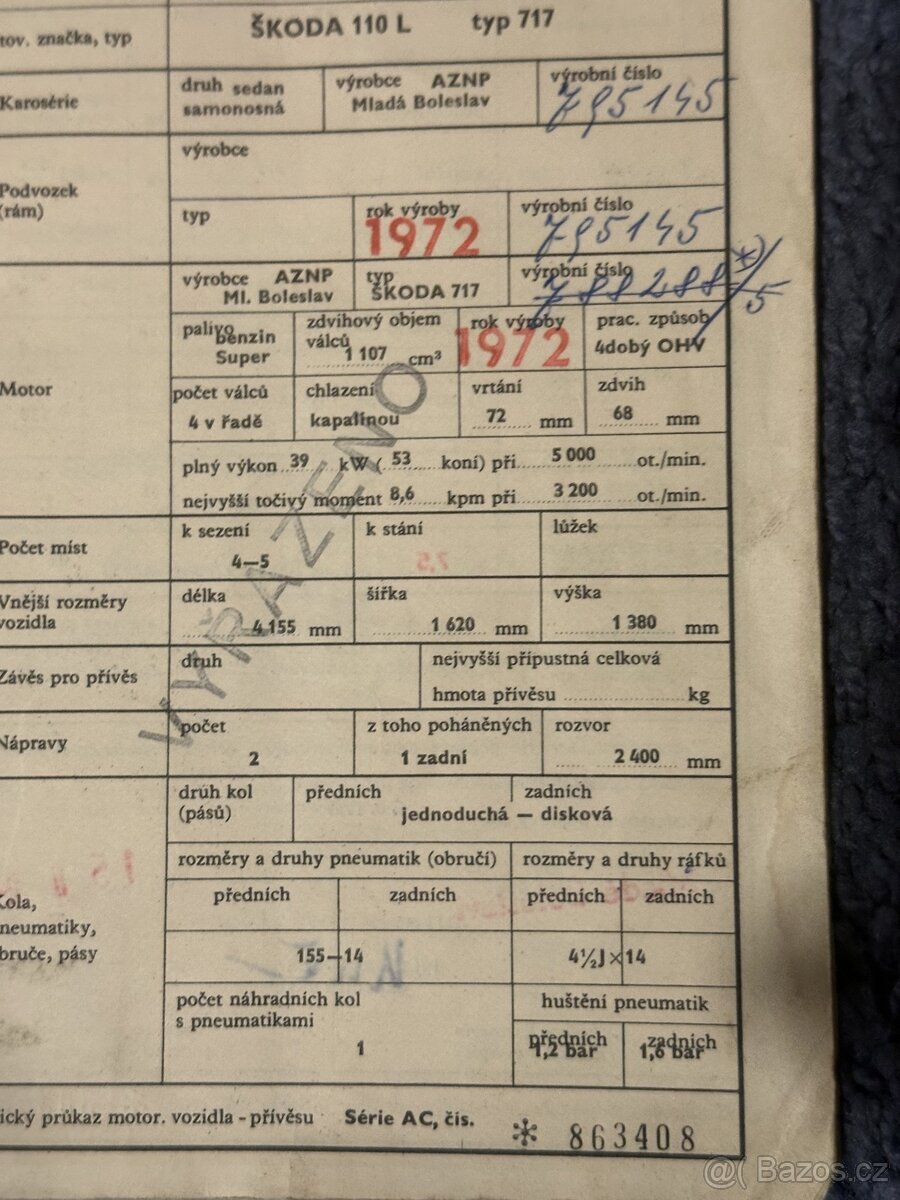 tov. značka, typ ŠKODA 110 L typ 717
Karosérie druh sedan samonosná výrobce AZNP Mladá Boleslav výrobní číslo 795145
výrobce
Podvozek (rám)
typ rok výroby 1972 výrobní číslo 795145
výrobce AZNP Ml. Boleslav typ ŠKODA 717 výrobní číslo 788288 *) 5
palivo benzin Super zdvihový objem válců 1 107 cm³ rok výroby 1972 prac. způsob 4dobý OHV
Motor
počet válců 4 v řadě chlazení kapalinou vrtání 72 mm zdvih 68 mm
plný výkon 39 kW (53 koní) při 5 000 ot./min.
nejvyšší točivý moment 8,6 kpm při 3 200 ot./min.
VYŘAZENO
Počet míst k sezení 4—5 k stání lůžek
7,5
Vnější rozměry vozidla délka 4 155 mm šířka 1 620 mm výška 1 380 mm
Závěs pro přívěs druh nejvyšší přípustná celková
hmota přívěsu kg
Nápravy počet 2 z toho poháněných 1 zadní rozvor 2 400 mm
druh kol (pásů) předních zadních
jednoduchá — disková
rozměry a druhy pneumatik (obručí) rozměry a druhy ráfků
Kola,
pneumatiky,
obruče, pásy
předních zadních předních zadních
155—14 4½J×14
počet náhradních kol huštění pneumatik
s pneumatikami
1 předních 1,2 bar zadních 1,6 bar
ický průkaz motor. vozidla - přívěsu Série AC, čís. * 863408
@( Bazos.cz